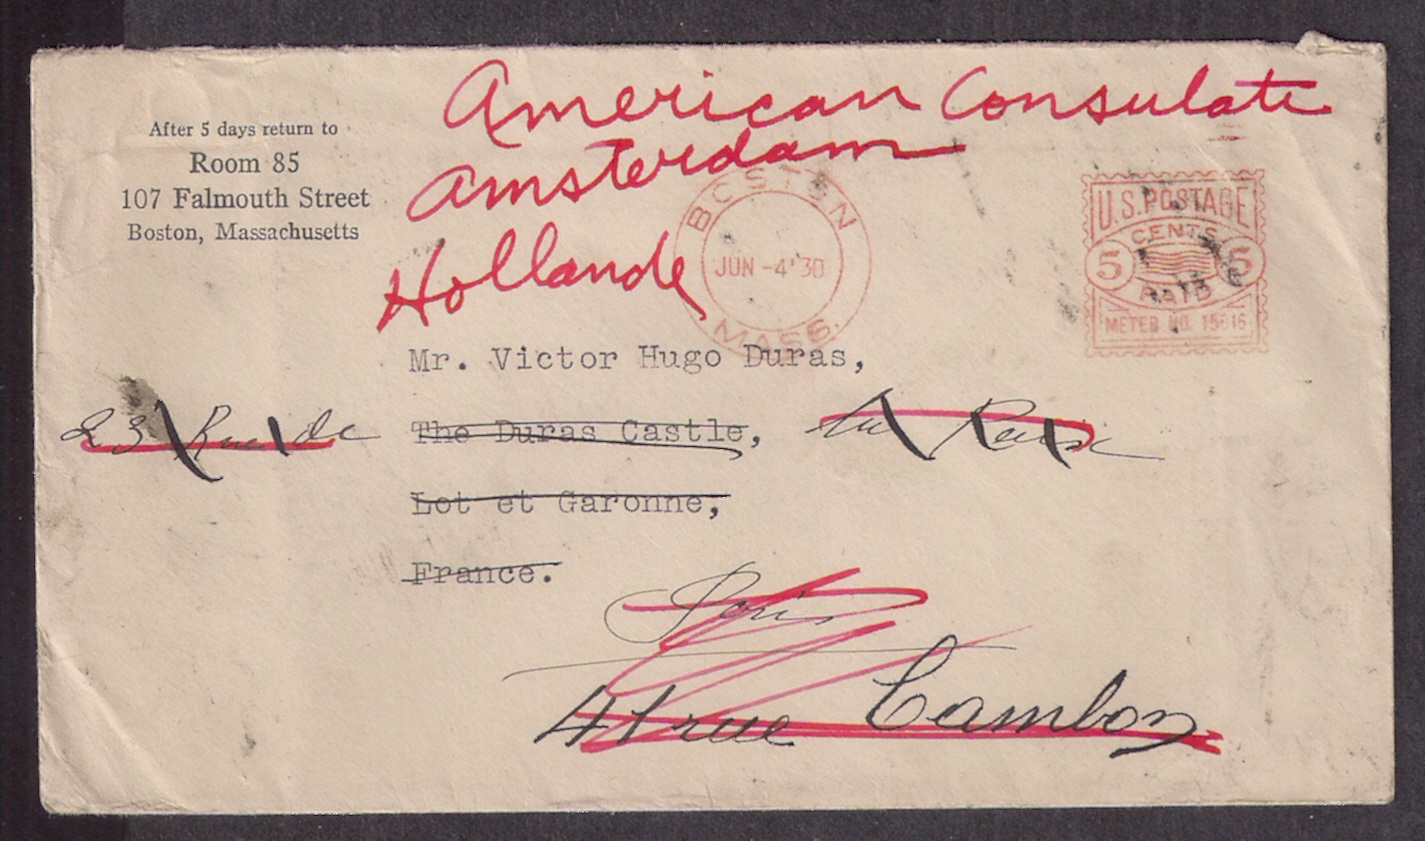 After 5 days return to
Room 85
107 Falmouth Street
Boston, Massachusetts
American Consulate
Amsterdam
Hollande
BOSTON
JUN -4 '30
MASS.
U.S. POSTAGE
CENTS
5 5
PAID
METER NO. 15616
Mr. Victor Hugo Duras,
The Duras Castle,
Lot et Garonne,
France.
23
Paris
41 rue Cambon